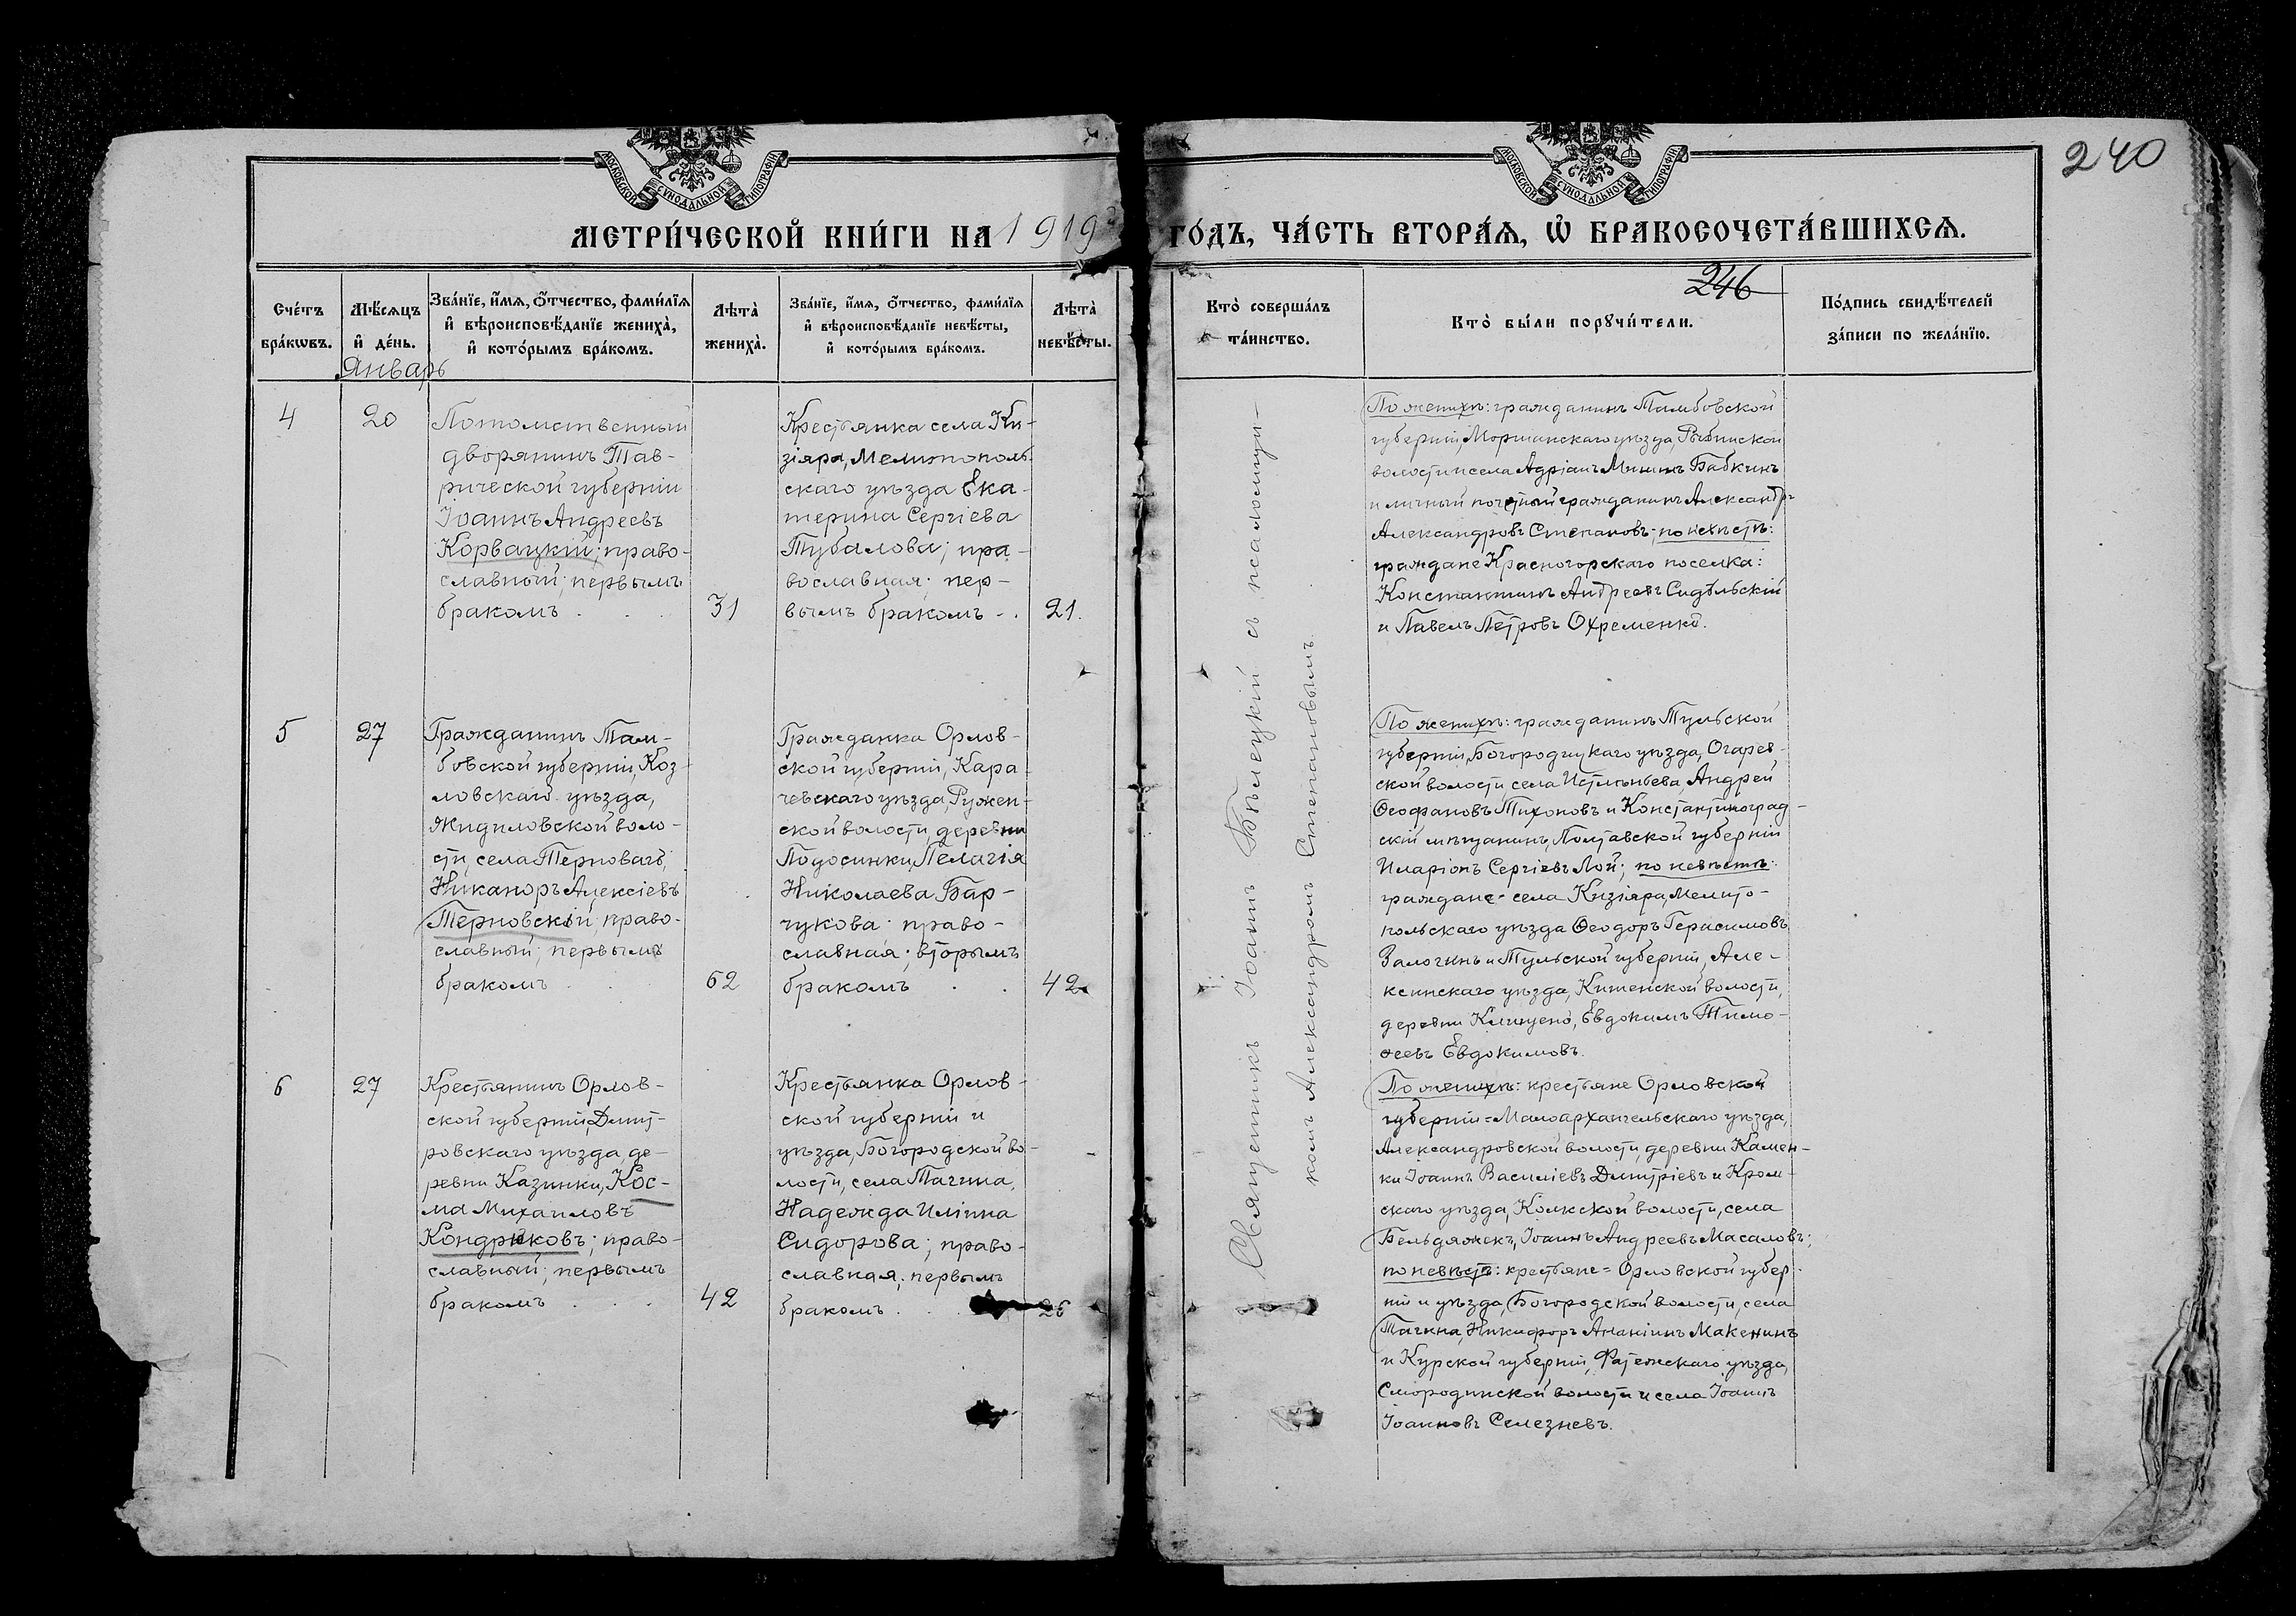 240
МОСКОВСКОЙ СУНОДАЛЬНОЙ ТИПОГРАФІИ
МОСКОВСКОЙ СУНОДАЛЬНОЙ ТИПОГРАФІИ
МЕТРИ́ЧЕСКОЙ КНИ́ГИ НА 1919 ГО́ДЪ, ЧА́СТЬ ВТОРА́Ѧ, Ѡ҆ БРАКОСОЧЕТА́ВШИХСѦ.
Сче́тъ бра́кѡвъ.
Мѣ́сѧцъ и҆ де́нь.
Январь
Зва́нїе, и҆́мѧ, ѻ҆́тчество, фами́лїѧ
и҆ вѣроисповѣ́данїе жениха̀,
и҆ кото́рымъ бра́комъ.
Лѣта̀ жениха̀.
Зва́нїе, и҆́мѧ, ѻ҆́тчество, фами́лїѧ
и҆ вѣроисповѣ́данїе невѣ́сты,
и҆ кото́рымъ бра́комъ.
Лѣта̀ невѣ́сты.
Кто̀ соверша́лъ
та́инство.
246
Кто̀ бы́ли порꙋчи́тели.
По́дпись свидѣ́телей
за́писи по жела́нїю.
4
20
Потомственный
дворянинъ Тав-
рической губерніи
Іоаннъ Андреевъ
Корвацкій; право-
славный; первымъ
бракомъ . . .
31
Крестьянка села Ки-
зіяра, Мелитополь-
скаго уѣзда Ека-
терина Сергіева
Тубалова; пра-
вославная; пер-
вымъ бракомъ - .
21.
Священникъ Іоаннъ Бѣлецкій съ псаломщи-
комъ Александромъ Степановымъ.
По женихѣ: гражданинъ Тамбовской
губерніи, Моршанскаго уѣзда, Рыбинской
волости и села Адріанъ Мининъ Бабкинъ
и личный почетный гражданинъ Александръ
Александровъ Степановъ; по невѣстѣ:
граждане Красногорского поселка:
Константинъ Андреевъ Сидѣльскій
и Павелъ Петровъ Охременко.
5
27
Гражданинъ Там-
бовской губерніи, Коз-
ловскаго уѣзда,
Жидиловской воло-
сти, села Терноваго,
Никаноръ Алексіевъ
Терновскій; право-
славный; первымъ
бракомъ . .
62
Гражданка Орлов-
ской губерніи, Кара-
чевскаго уѣзда, Ружен-
ской волости, деревни
Подосинки, Пелагія
Николаева Бар-
чукова; право-
славная; вторымъ
бракомъ . .
42
По женихѣ: гражданинъ Тульской
губерніи, Богородицкаго уѣзда, Огарев-
ской волости, села Андрей
Ѳеофановъ Тихоновъ и Константиноград-
скій мѣщанинъ, Полтавской губерніи
Иларіонъ Сергіевъ Лой; по невѣстѣ:
граждане - села Кизіяра, Мелито-
польскаго уѣзда Ѳеодоръ Герасимовъ
Залогинъ и Тульской губерніи, Але-
ксинскаго уѣзда, волости,
деревни Евдокимъ Тимо-
ѳеевъ Евдокимовъ.
6
27
Крестьянинъ Орлов-
ской губерніи, Дмит-
ровскаго уѣзда, де-
ревни Казинки, Кос-
ма Михаиловъ
Кондриковъ; право-
славный; первымъ
бракомъ . . .
42
Крестьянка Орлов-
ской губерніи и
уѣзда, Богородской во-
лости, села Тагина,
Надежда Иліина
Сидорова; право-
славная; первымъ
бракомъ . .
26
По женихѣ: крестьяне Орловской
губерніи = Малоархангельскаго уѣзда,
Александровской волости, деревни Камен-
ки Іоаннъ Василіевъ Димитріевъ и Кром-
скаго уѣзда, Колкской волости, села
Бельдяжекъ, Іоаннъ Андреевъ Масаловъ;
по невѣстѣ: крестьяне = Орловской губер-
ніи и уѣзда, Богородской волости, села
Тагина, Никифоръ Ананіинъ Макенинъ
и Курской губерніи, Фатежскаго уѣзда,
Смородинской волости и села Іоаннъ
Іоанновъ Селезневъ.